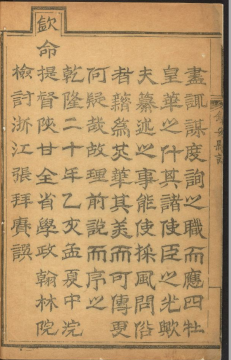 盡諏謀度詢之職而應四牡
皇華之什其諸使臣之光歟
夫纂述之事能使採風問俗
者藉為英華其美而可傳更
何疑哉故理前說而序之
乾隆二十年乙亥孟夏中浣
欽命提督陝甘全省學政翰林院
檢討浙江張拜賡譔